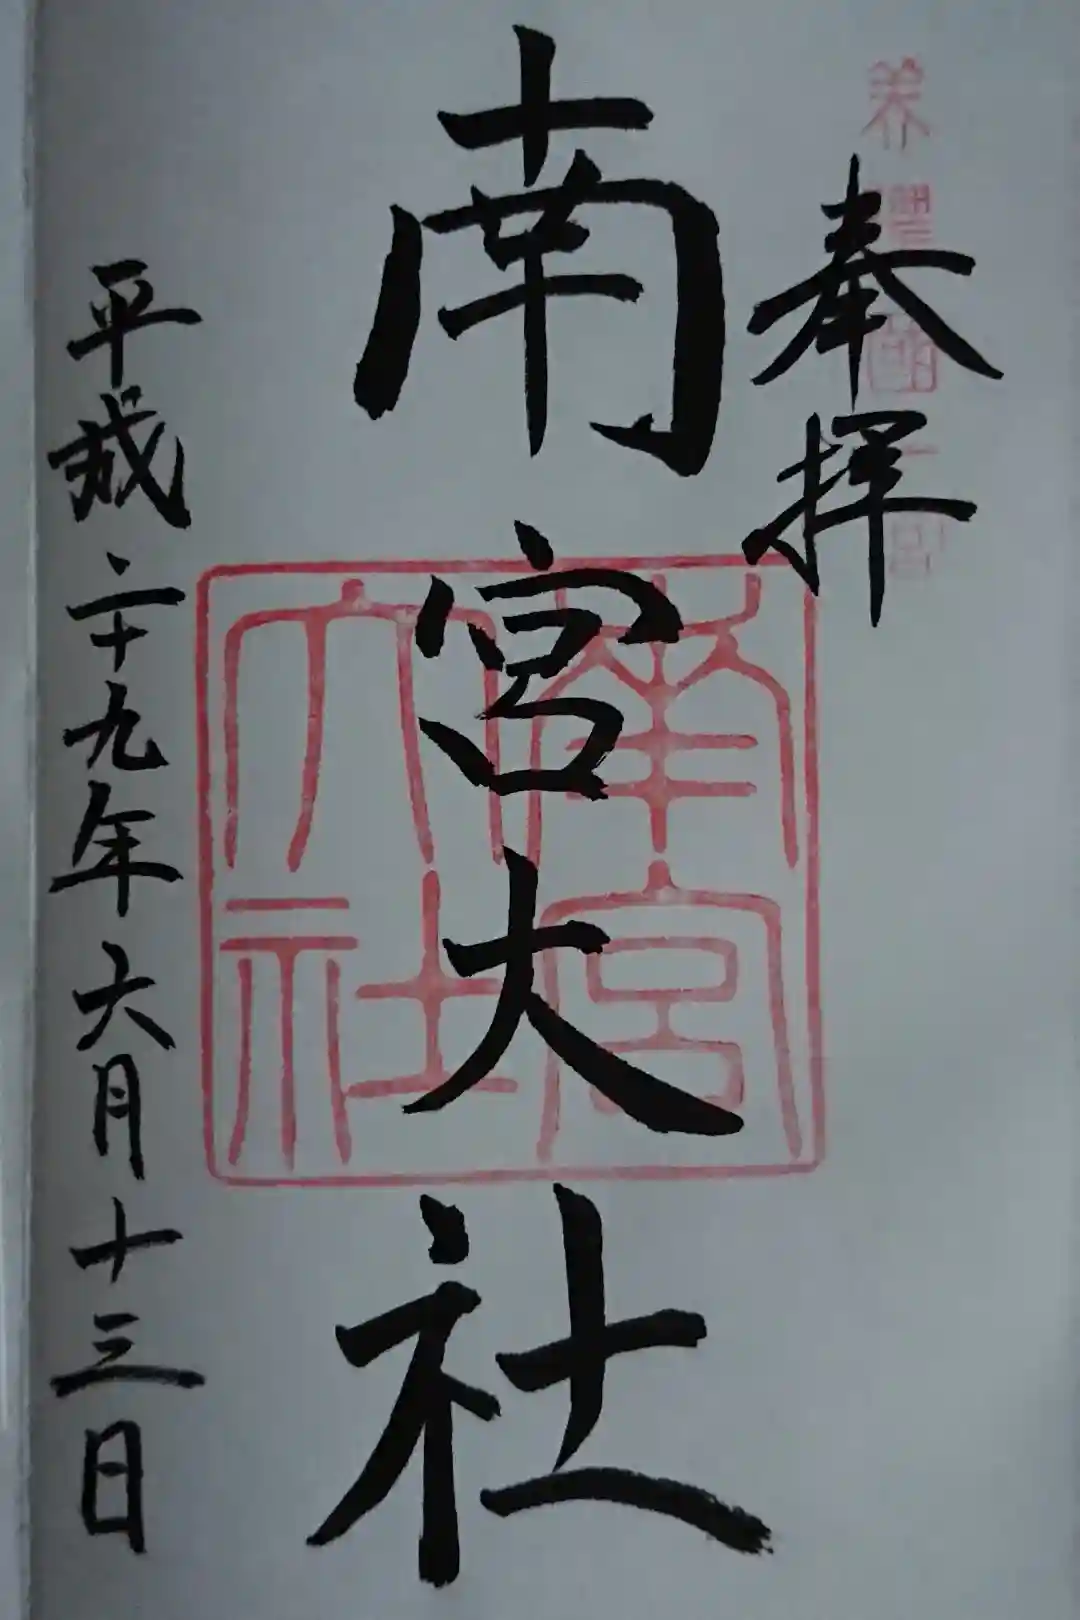 美濃國一宮
奉拝
南宮大社
南宮大社
平成二十九年六月十三日